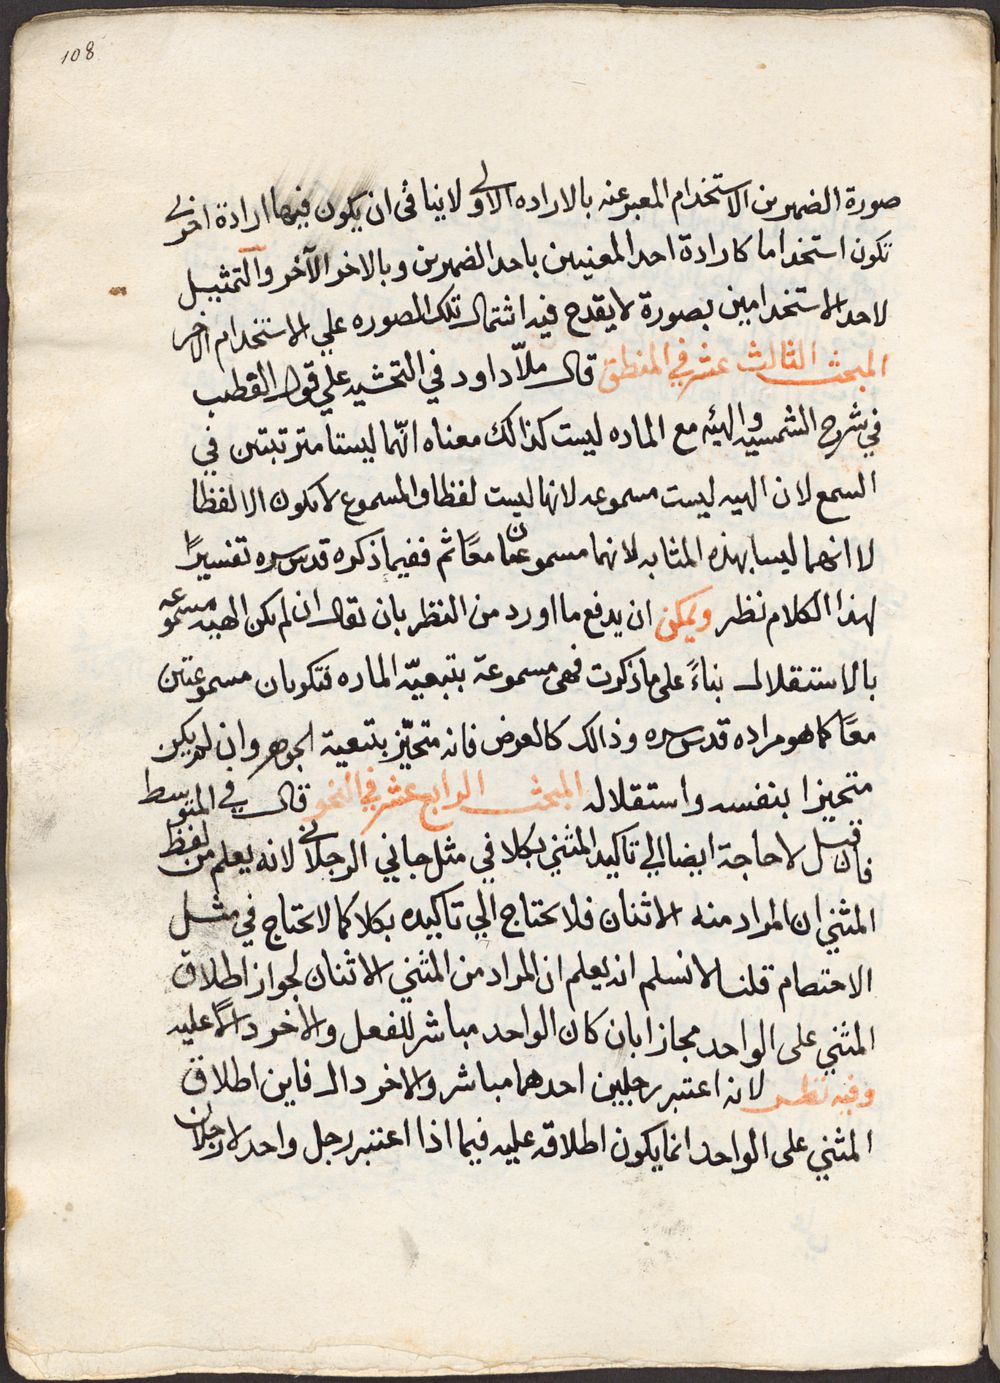 108
صورة الضميرين الاستخدام المعبر عنه بالاراده الاولى لا ينافي ان يكون فيها ارادة اخرى
تكون استخداما كارادة احد المعنيين باحد الضميرين وبالاخر الآخر والتمثيل
لاحد الاستخدامين بصورة لا يقدح فيه اشتمال تلك الصوره علي الاستخدام الاخر
المبحث الثالث عشر في المنطق قال ملاّ داود في التحشيه علي قول القطب
في شرح الشمسيه والهيئه مع الماده ليست كذالك معناه انهما ليستا مترتبتين في
السمع لان الهيه ليست مسموعه لانها ليست لفظا والمسموع لا يكون الا لفظا
لا انهما ليسا بهذه المثابه لانهما مسموعتان معًا ثم ففيما ذكره قدس سره تفسيرًا
لهذا الكلام نظر ويمكن ان يدفع ما اورد من النظر بان نقال ان لم يكن الهيه مسموعه
بالاستقلال بناءً على ما ذكرت فهى مسموعة بتبعيّه الماده فتكونان مسموعتين
معًا كما هو مراده قدس سره وذالك كالعرض فانه متحيّز بتبعية الجوهر وان لم يكن
متحيزا بنفسه واستقلاله المبحث الرابع عشر في النحو قال في المتوسط
فان قيل لا حاجة ايضا الي تاكيد المثني بكلا في مثل جاني الرجلان لانه يعلم من لفظ
المثني ان المراد منه الاثنان فلا يحتاج الي تاكيده بكلا كما لا يحتاج في مثل
الاختصام قلنا لا نسلم انه يعلم ان المراد من المثني الاثنان لجواز اطلاق
المثني على الواحد مجازا بان كان الواحد مباشر للفعل والاخر دالًا عليه
وفيه نظر لانه اعتبر رجلين احدهما مباشر والاخر دال فاين اطلاق
المثني على الواحد انما يكون اطلاقه عليه فيما اذا اعتبر رجل واحد لا رجلان